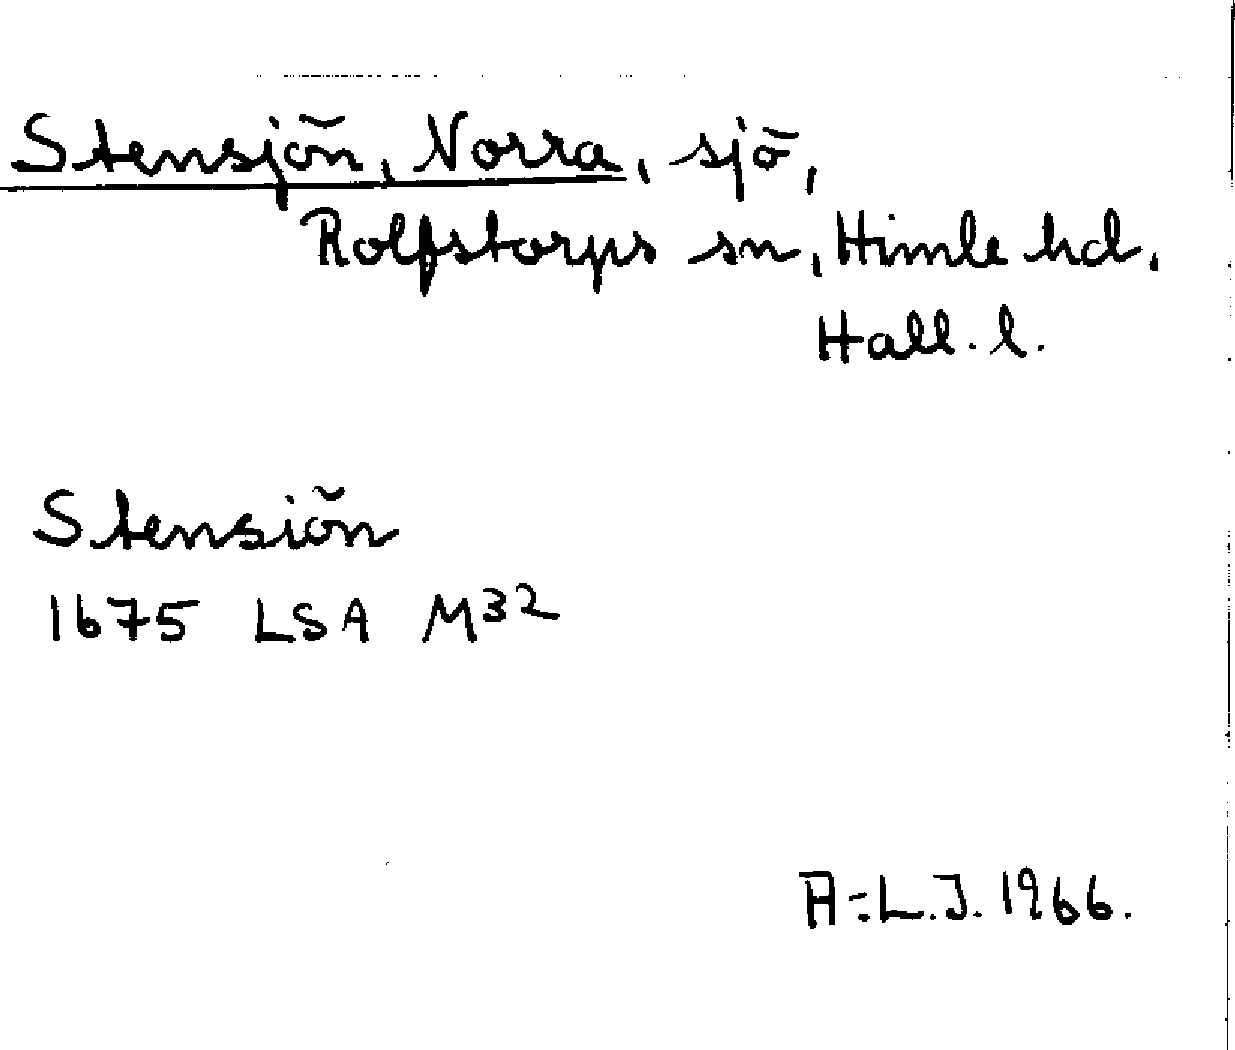 Stensjön, Norra, sjö,
Rolfstorps sn, Himle hd,
Hall. l.
Stensiön
1675 LSA M32
A-L.J. 1966.